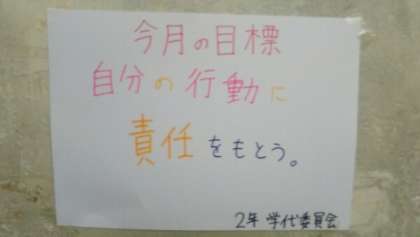 今月の目標
自分の行動に
責任をもとう。
2年 学代委員会